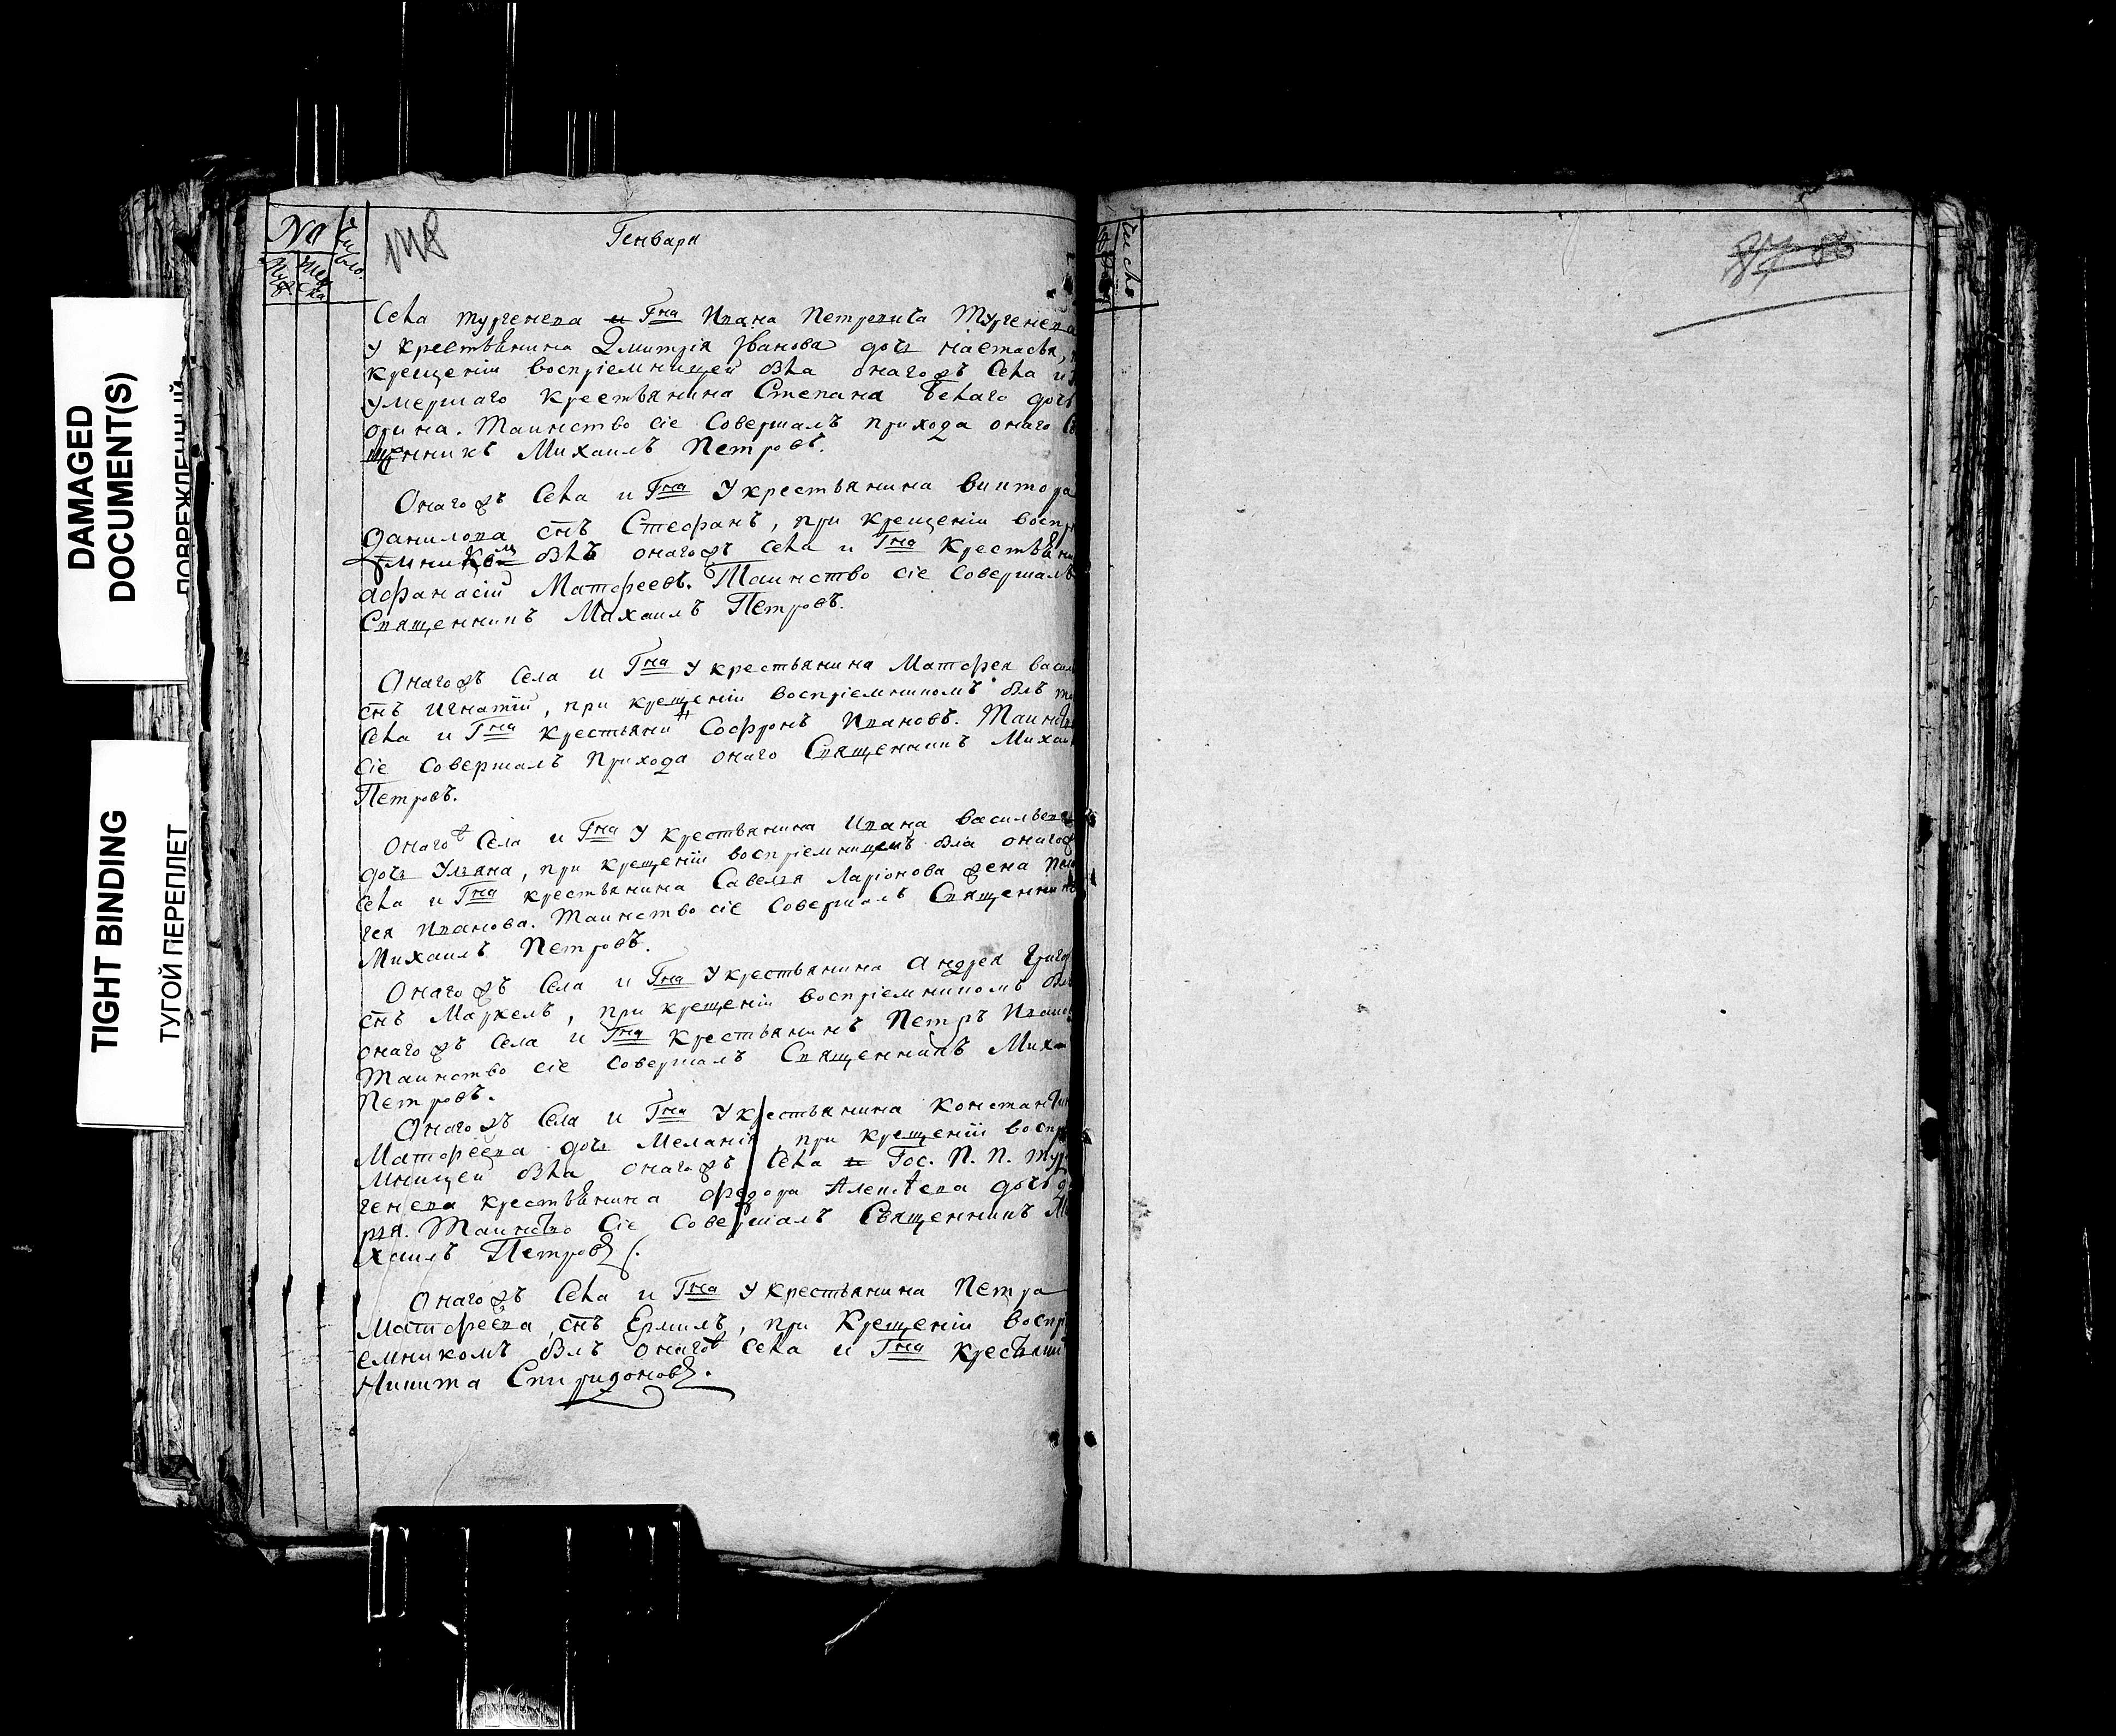 DAMAGED
DOCUMENT(S)
ПОВРЕЖДЕННЫЙ
TIGHT BINDING
ТУГОЙ ПЕРЕПЛЕТ
№
Число.
Муж
Жес
ка
Генваря
Села тургенева Гна Ивана Петровича Тургенева
у крестьянина Дмитрія Іванова дочь настасья,
крещеніи воспріемницей бла онагожъ Села и
умершаго крестьянина Степана Белаго дочь
орина. Таинство сіе Совершалъ прихода онаго
щенникъ Михаилъ Петровъ.
Онагожъ Села и Гна У крестьянина виктора
данилова снъ Стефанъ, при крещеніи воспрі
емникомъ блъ онагожъ села и Гна Крестьяни
афанасій Матфеевъ. Таинство сіе Совершалъ
Священникъ Михаилъ Петровъ.
Онагожъ Села и Гна У крестьянина Матфея васил
снъ Игнатій, при крещеніи воспріемникомъ блъ
села и Гна крестьяни Софронъ Ивановъ. Таинство
сіе Совершалъ Прихода онаго Священникъ Михаи
Петровъ.
Онагож Села и Гна У крестьянина Ивана васильева
дочь Ульяна, при крещеніи воспріемницей бла онагож
села и Гна крестьянина Савелья Ларіонова жена
гея Иванова. Таинство сіе Совершалъ Священникъ
Михаилъ Петровъ.
Онагожъ Села и Гна У крестьянина Андрея Григор
снъ Маркелъ, при крещеніи воспріемникомъ блъ
онагожъ Села и Гна Крестьянинъ Петръ Иванов
Таинство сіе Совершалъ Священникъ Миха
Петровъ.
Онагожъ Села и Гна У крестьянина Константин
Матфеева дочь Меланія, при крещеніи воспрі
мницей бла онагожъ Села Гос. П. П. Тур
генева крестьянина федора Алексеева дочь да
рья. Таинство Сіе Совершалъ Священникъ Ми
хаилъ Петровъ.
Онагожъ Села и Гна У крестьянина Петра
Матфеева снъ Ермилъ, при Крещеніи воспрі
емникомъ блъ онагож села и Гна крестьяни
Никита Спиридоновъ.
Число